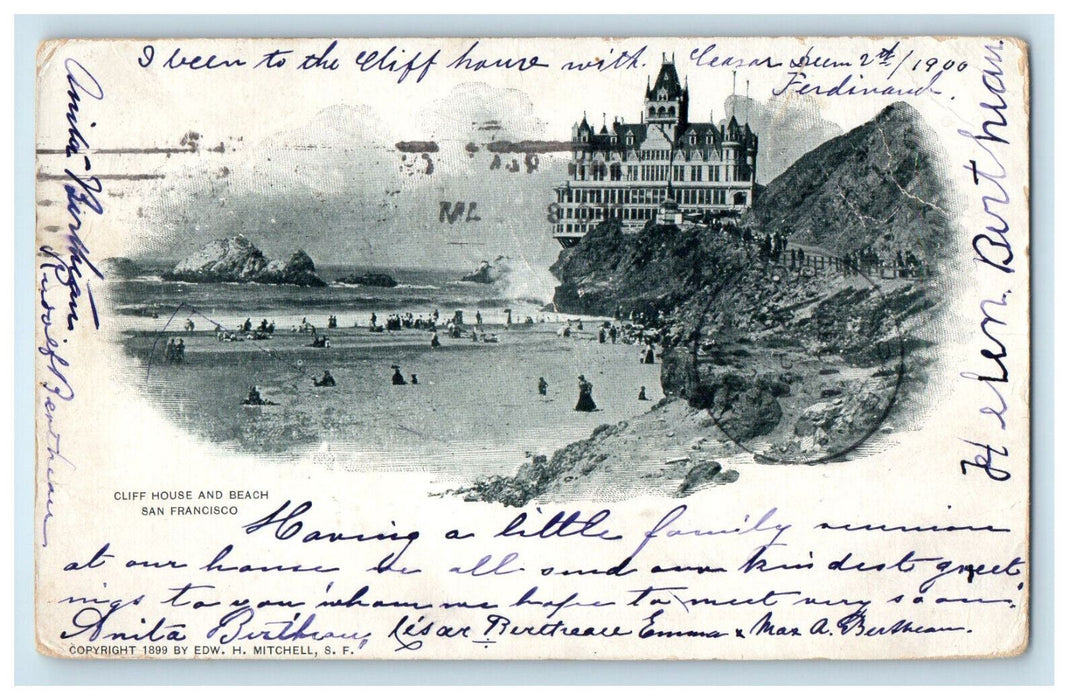 I been to the Cliff house with. Ceasar 2nd/1900
Ferdinand.
Anita Bertheau
Rudolf Bertheau
Helen. Bertheau.
CLIFF HOUSE AND BEACH
SAN FRANCISCO
Having a little family reunion
at our house we all send our kindest greet
ings to you, whom we hope to meet very soon.
Anita Bertheau, César Bertheau Emma & Max A. Bertheau.
COPYRIGHT 1899 BY EDW. H. MITCHELL, S. F.